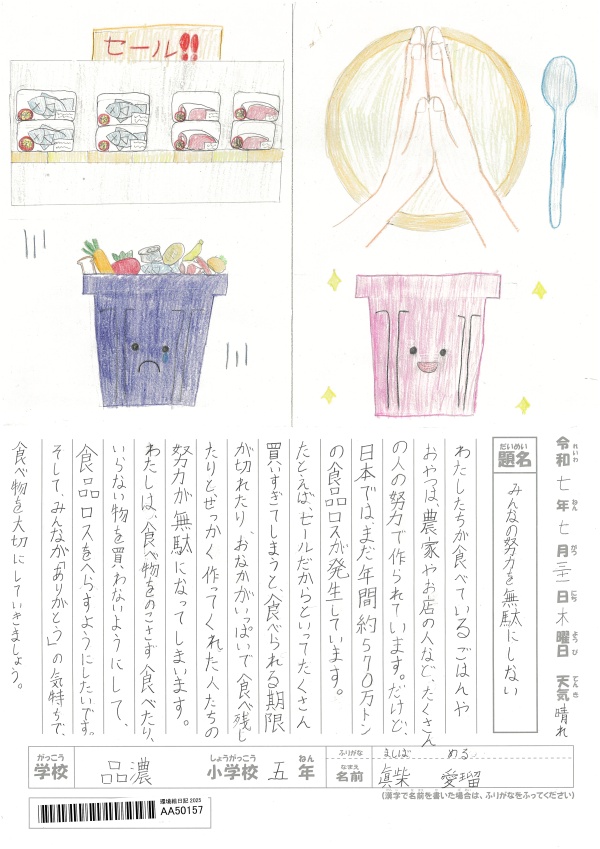 セール!!
令和 七年 七月 三十一日 木曜日 天気 晴れ
れいわ ねん がつ にち ようび てんき
だいめい
題名 みんなの努力を無駄にしない
わたしたちが食べているごはんや
おやつは、農家やお店の人など、たくさん
の人の努力で作られています。だけど、
日本では、まだ年間約570万トン
の食品ロスが発生しています。
たとえば、セールだからといってたくさん
買いすぎてしまうと、食べられる期限
が切れたり、おなかがいっぱいで食べ残し
たりとぜっかく作ってくれた人たちの
努力が無駄になってしまいます。
わたしは、食べ物をのこさず食べたり、
いらない物を買わないようにして、
食品ロスをへらすようにしたいです。
そして、みんなが「ありがとう」の気持ちで、
食べ物を大切にしていきましょう。
がっこう しょうがっこう ねん
学校 品濃 小学校 五 年
ふりがな ましば める
なまえ
名前 眞柴 愛瑠
(漢字で名前を書いた場合は、ふりがなをふってください)
環境絵日記 2025
AA50157